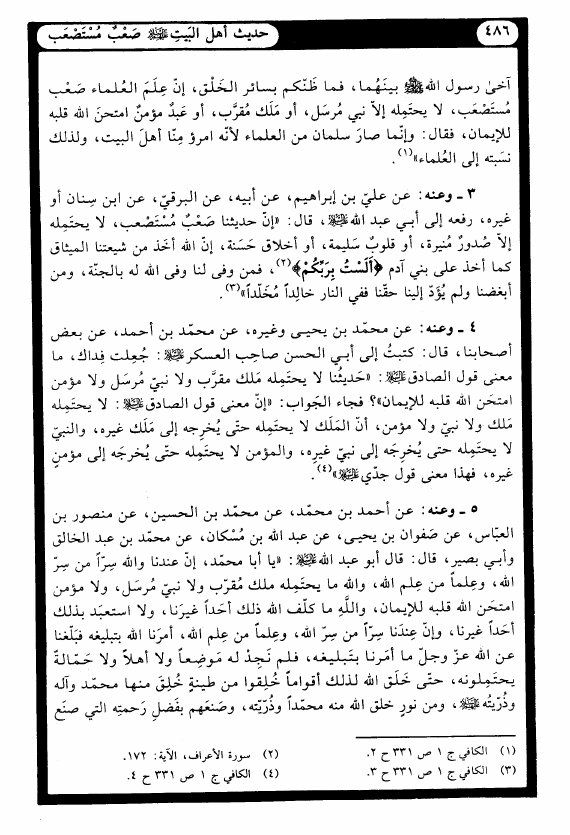 ٤٨٦
حديث أهل البَيتِ ﵇ صَعْبٌ مُسْتَصْعَب
آخىٰ رسول الله ﷺ بينَهُما، فما ظَنّكم بسائر الخَلْق، إنّ عِلمَ العُلماء صَعْب
مُستَصْعَب، لا يحتَمِله إلاّ نبي مُرسَل، أو مَلَك مقرَّب، أو عَبدٌ مؤمنٌ امتحنَ الله قلبه
للإيمان، فقال: وإنّما صارَ سلمان من العلماء لأنّه امرؤ مِنّا أهلَ البيت، ولذلك
نسَبته إلى العُلماء»(١).
٣ ـ وعنه: عن عليّ بن إبراهيم، عن أبيه، عن البرقيّ، عن ابن سِنان أو
غيره، رفعه إلى أبي عبد الله ﵇، قال: «إنّ حديثنا صَعْبٌ مُسْتَصْعَب، لا يحتمِله
إلاّ صُدورٌ مُنيرة، أو قلوبٌ سَليمة، أو أخلاق حَسَنة، إنّ الله أخَذ من شيعتنا الميثاق
كما أخذ على بني آدم ﴿أَلَسْتُ بِرَبِّكُمْ﴾(٢)، فمن وفى لنا وفى الله له بالجنّة، ومن
أبغضنا ولم يُؤَدّ إلينا حقّنا ففي النار خالِداً مُخَلّداً»(٣).
٤ ـ وعنه: عن محمّد بن يحيى وغيره، عن محمّد بن أحمد، عن بعض
أصحابنا، قال: كتبتُ إلى أبي الحسن صاحِب العسكر ﵇: جُعِلت فِداك، ما
معنى قول الصادق ﵇: «حَديثُنا لا يحتمِله مَلك مقرَّب ولا نبيّ مُرسَل ولا مؤمن
امتحَن الله قلبه للإيمان»؟ فجاء الجَواب: «إنّ معنى قول الصادق ﵇: لا يحتمِله
مَلك ولا نبيّ ولا مؤمن، أنّ المَلَك لا يحتمِله حتّى يُخرِجه إلى مَلَك غيره، والنبيّ
لا يحتمِله حتى يُخرِجَه إلى نبيّ غيرِه، والمؤمن لا يحتمِله حتّى يُخرجَه إلى مؤمنٍ
غيره، فهذا معنى قول جدّي ﵇»(٤).
٥ ـ وعنه: عن أحمد بن محمّد، عن محمّد بن الحسين، عن منصور بن
العبّاس، عن صَفوان بن يحيى، عن عبد الله بن مُسْكان، عن محمّد بن عبد الخالق
وأبي بصير، قال: قال أبو عبد الله ﵇: «يا أبا محمّد، إنّ عندنا والله سِرّاً من سِرّ
الله، وعِلماً من عِلم الله، والله ما يحتمِله ملك مُقرّب ولا نبيّ مُرسَل، ولا مؤمن
امتحَن الله قلبه للإيمان، واللَّهِ ما كلّف الله ذلك أحَداً غيرَنا، ولا استعبَد بذلك
أحَداً غيرنا، وإنّ عِنْدَنا سِرّاً من سِرّ الله، وعِلماً من عِلم الله، أمرَنا الله بتبليغه فبَلّغنا
عن الله عزّ وجلّ ما أمَرنا بتَبليغه، فلم نَجِدْ له مَوضِعاً ولا أهلاً ولا حَمالةً
يحتمِلونه، حتّى خَلَق الله لذلك أقواماً خُلِقوا من طينةٍ خُلِقَ منها محمّد وآله
وذُرّيتُه ﵈، ومن نورٍ خلق الله منه محمّداً وذُرّيّته، وصَنَعهم بفَضلِ رَحمتِه التي صنَع
(١) الكافي ج ١ ص ٣٣١ ح ٢.
(٢) سورة الأعراف، الآية: ١٧٢.
(٣) الكافي ج ١ ص ٣٣١ ح ٣.
(٤) الكافي ج ١ ص ٣٣١ ح ٤.